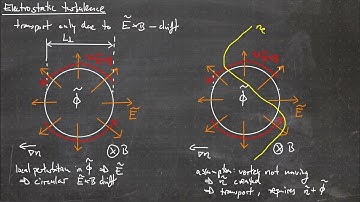 Electrostatic turbulence
transport only due to Ẽ×B - drift
L⊥
Φ̃
Ẽ
∇n
⊗ B
local perturbation in Φ̃ ⇒ Ẽ
⇒ circular Ẽ×B drift
Φ̃
Ẽ
∇n
⊗ B
assumption: vortex not moving
⇒ ñ created
⇒ transport, requires ñ + Φ̃